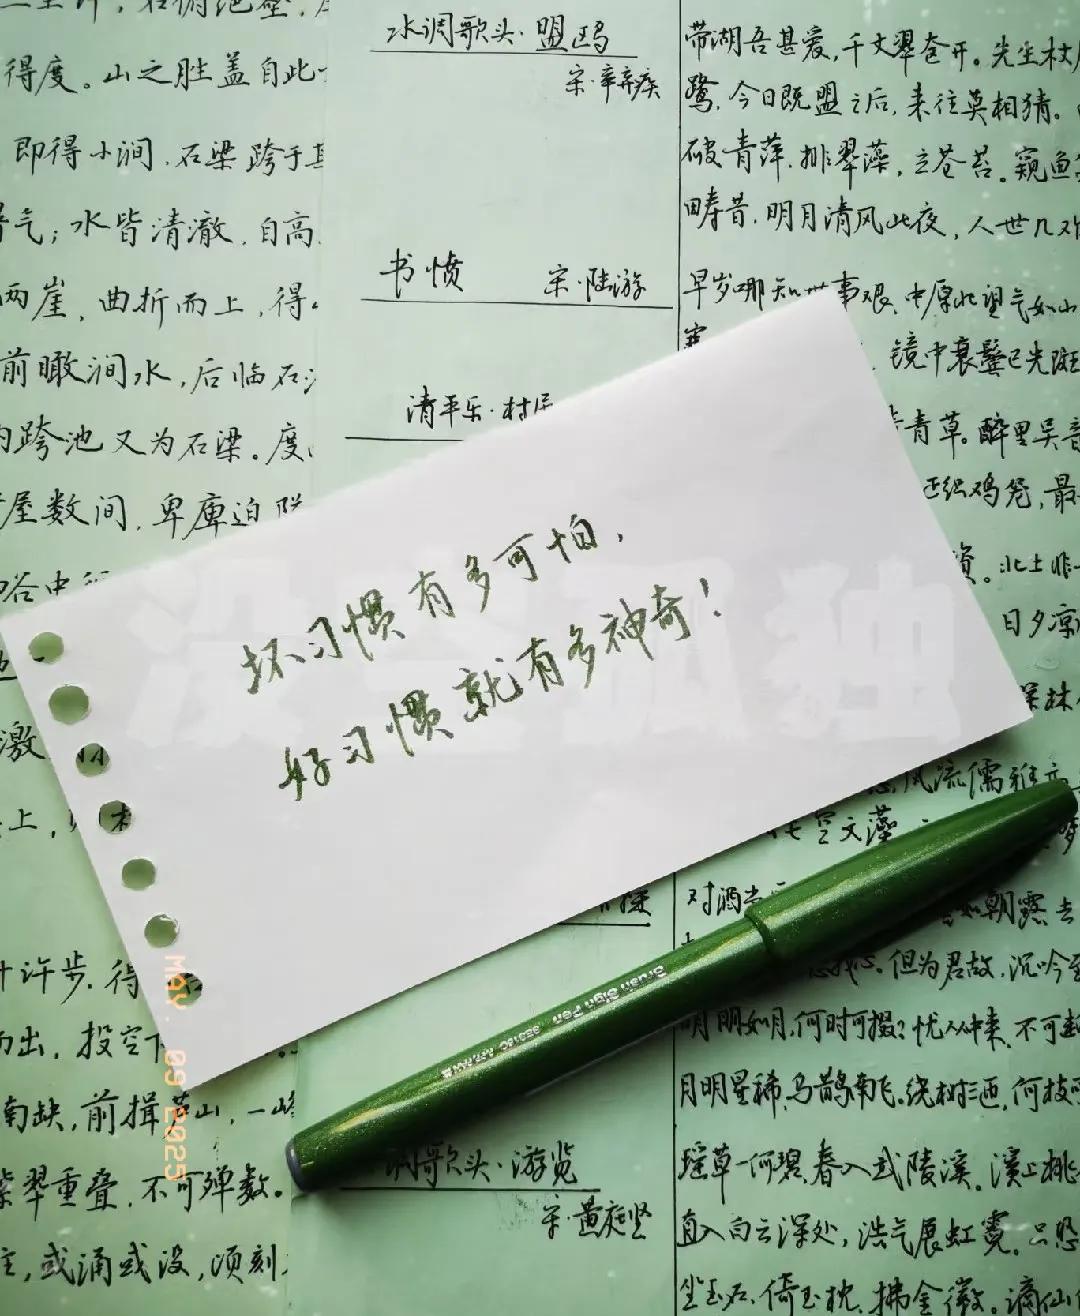 得度。山之胜盖自此
即得小涧,石梁跨于
气;水皆清澈,自高
两崖,曲折而上,得
前瞰涧水,后临石
内跨池又为石梁。度
屋数间,卑庳迫
谷中
激
上,
许步,得
而出,投空下
南缺,前揖芦山,一峰
翠重叠,不可殚数。
或涌或没,顷刻
水调歌头·盟鸥
宋·辛弃疾
书愤 宋·陆游
清平乐·村居
调歌头·游览
宋·黄庭坚
带湖吾甚爱,千丈翠奁开。先生杖
鹭,今日既盟之后,来往莫相猜。
破青萍,排翠藻,立苍苔。窥鱼
畴昔,明月清风此夜,人世几
早岁哪知世事艰,中原北望气如山
镜中衰鬓已先斑
青草。醉里吴音
正织鸡笼,最
北土非
日夕凉
深林
风流儒雅亦
空文藻
对酒当
如朝露去
但为君故,沉吟至
明明如月,何时可掇?忧从中来,不可
月明星稀,乌鹊南飞。绕树三匝,何枝可
瑶草一何碧,春入武陵溪。溪上桃
直入白云深处,浩气展虹霓。只恐
坐玉石,倚玉枕,拂金徽。谪仙
坏习惯有多可怕,
好习惯就有多神奇!
没空孤独
Brush Sign Pen
May. 09 2025